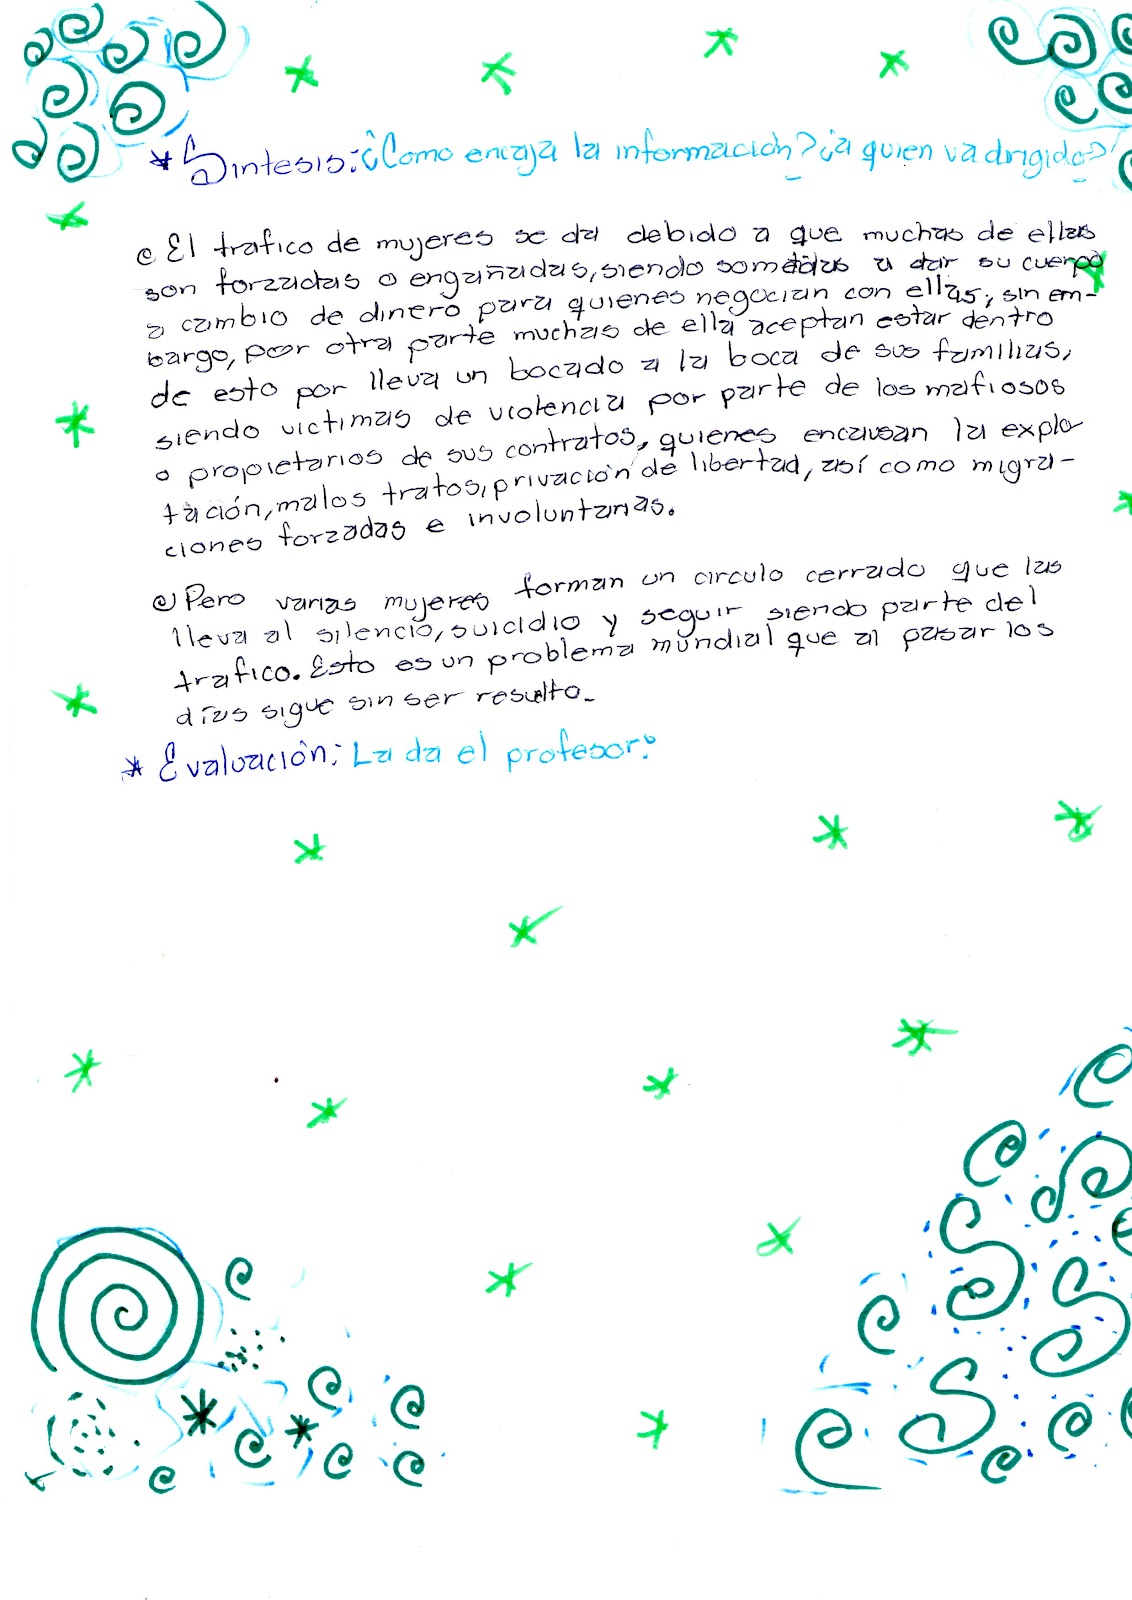 * Sintesis: ¿Como encaja la información? ¿a quien va dirigido?
El trafico de mujeres se da debido a que muchas de ellas
son forzadas o engañadas, siendo sometidas a dar su cuerpo
a cambio de dinero para quienes negocian con ellas, sin em-
bargo, por otra parte muchas de ella aceptan estar dentro
de esto por lleva un bocado a la boca de sus familias,
siendo victimas de violencia por parte de los mafiosos
o propietarios de sus contratos, quienes encausan la explo-
tación, malos tratos, privación de libertad, así como migra-
ciones forzadas e involuntarias.
Pero varias mujeres forman un circulo cerrado que las
lleva al silencio, suicidio y seguir siendo parte del
trafico. Esto es un problema mundial que al pasar los
días sigue sin ser resulto.
* Evaluación: La da el profesor.